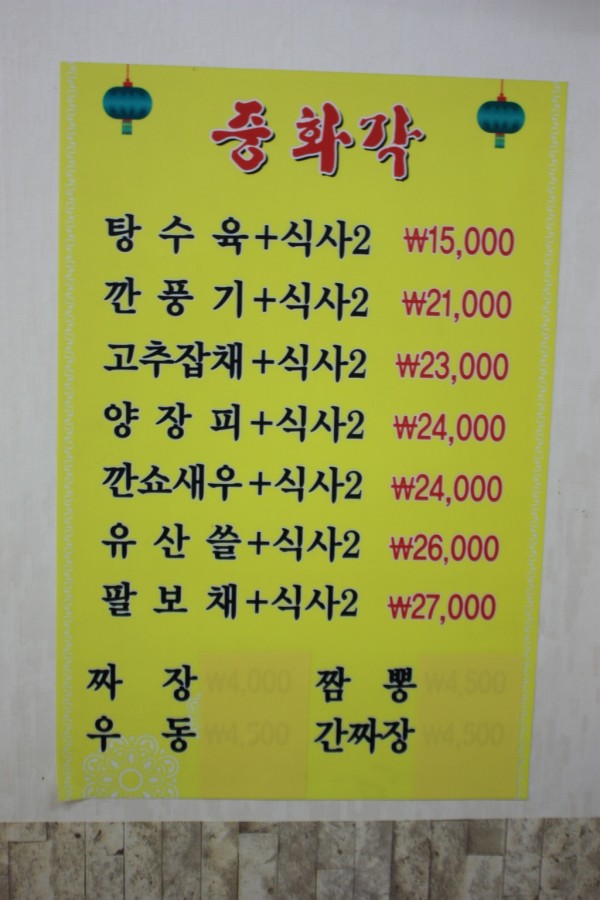 중화각
탕수육+식사2 ₩15,000
깐풍기+식사2 ₩21,000
고추잡채+식사2 ₩23,000
양장피+식사2 ₩24,000
깐쇼새우+식사2 ₩24,000
유산쓸+식사2 ₩26,000
팔보채+식사2 ₩27,000
짜장 ₩4,000 짬뽕 ₩4,500
우동 ₩4,500 간짜장 ₩4,500